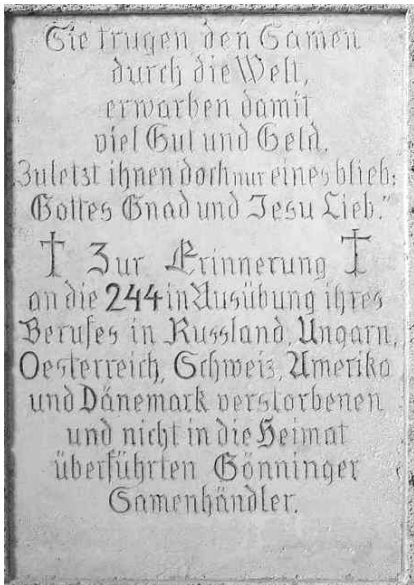 Sie trugen den Samen
durch die Welt,
erwarben damit
viel Gut und Geld.
Zuletzt ihnen doch nur eines blieb:
Gottes Gnad und Jesu Lieb."
† Zur Erinnerung †
an die 244 in Ausübung ihres
Berufes in Russland, Ungarn,
Oesterreich, Schweiz, Amerika
und Dänemark verstorbenen
und nicht in die Heimat
überführten Gönninger
Samenhändler.